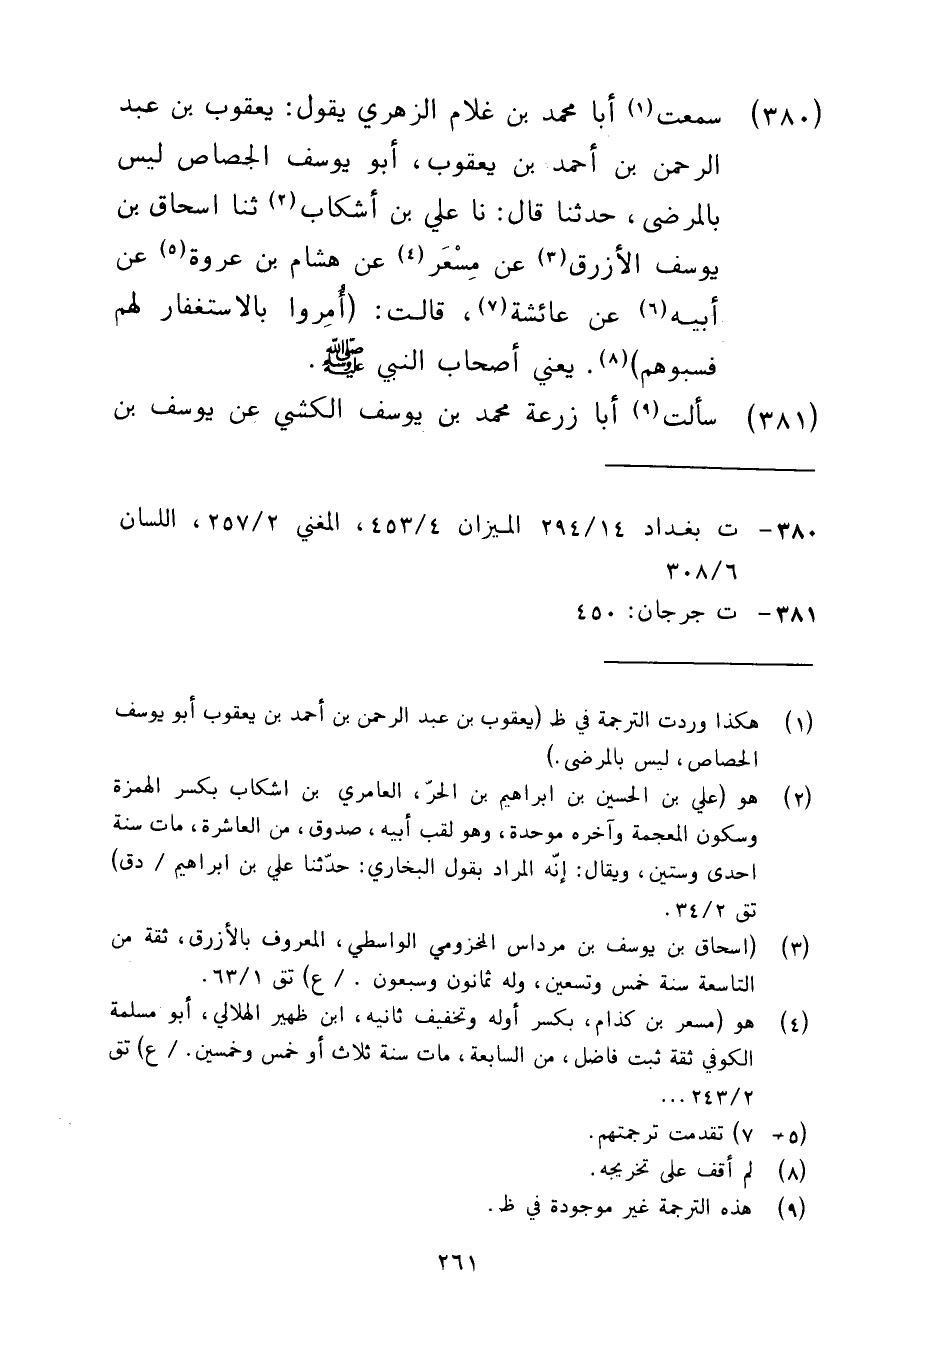 (٣٨٠) سمعت(١) أبا محمد بن غلام الزهري يقول: يعقوب بن عبد
الرحمن بن أحمد بن يعقوب، أبو يوسف الجصاص ليس
بالمرضى، حدثنا قال: نا علي بن أشكاب(٢) ثنا اسحاق بن
يوسف الأزرق(٣) عن مِسْعَر(٤) عن هشام بن عروة(٥) عن
أبيه(٦) عن عائشة(٧)، قالت: (أُمِروا بالاستغفار لهم
فسبوهم)(٨). يعني أصحاب النبي ﷺ.
(٣٨١) سألت(٩) أبا زرعة محمد بن يوسف الكشي عن يوسف بن
٣٨٠- ت بغداد ٢٩٤/١٤ الميزان ٤٥٣/٤، المغني ٢٥٧/٢، اللسان
٣٠٨/٦
٣٨١- ت جرجان: ٤٥٠
(١) هكذا وردت الترجمة في ظ (يعقوب بن عبد الرحمن بن أحمد بن يعقوب أبو يوسف
الحصاص، ليس بالمرضى.)
(٢) هو (علي بن الحسين بن ابراهيم بن الحرّ، العامري بن اشكاب بكسر الهمزة
وسكون المعجمة وآخره موحدة، وهو لقب أبيه، صدوق، من العاشرة، مات سنة
احدى وستين، ويقال: إنّه المراد بقول البخاري: حدّثنا علي بن ابراهيم / دق)
تق ٣٤/٢.
(٣) (اسحاق بن يوسف بن مرداس المخزومي الواسطي، المعروف بالأزرق، ثقة من
التاسعة سنة خمس وتسعين، وله ثمانون وسبعون . / ع) تق ٦٣/١.
(٤) هو (مسعر بن كذام، بكسر أوله وتخفيف ثانيه، ابن ظهير الهلالي، أبو مسلمة
الكوفي ثقة ثبت فاضل، من السابعة، مات سنة ثلاث أو خمس وخمسين. / ع) تق
٢٤٣/٢ ...
(٥- ٧) تقدمت ترجمتهم.
(٨) لم أقف على تخريجه.
(٩) هذه الترجمة غير موجودة في ظ.
٢٦١